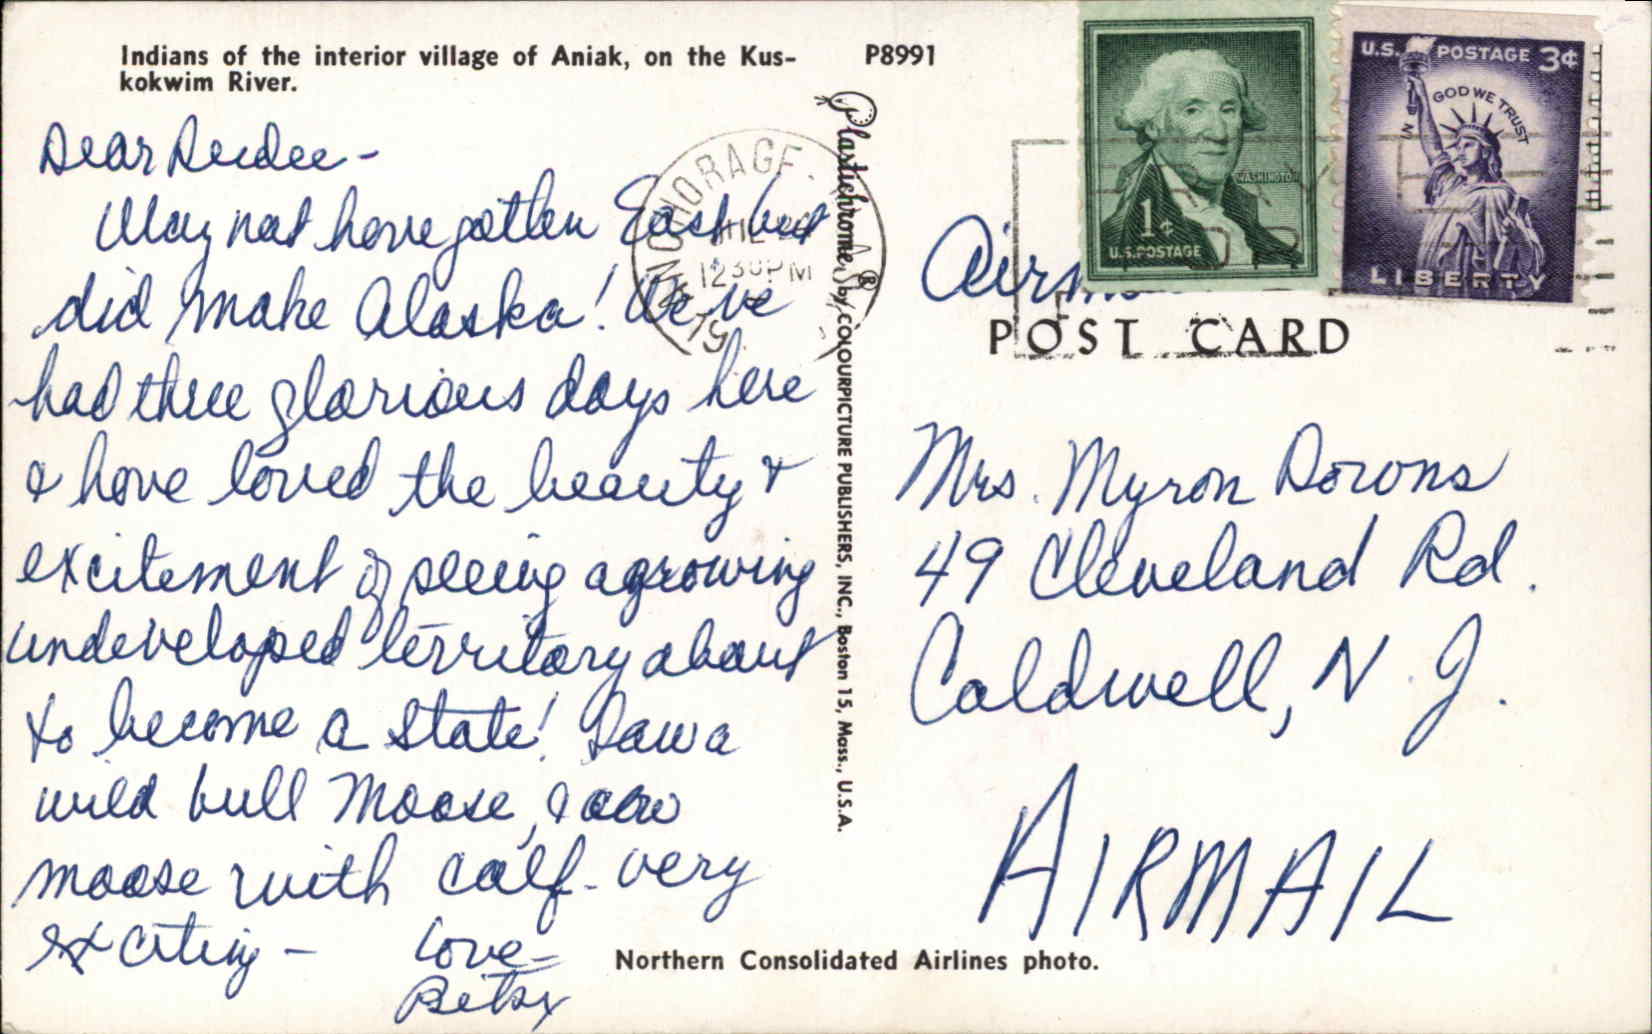 Indians of the interior village of Aniak, on the Kus-
kokwim River.
P8991
Dear Deedee -
May not have gotten East but
did make Alaska! We've
had three glorious days here
& have loved the beauty &
excitement of seeing a growing
undeveloped territory about
to become a State! Saw a
wild bull Moose, & cow
moose with calf - very
exciting -
Love -
Betsy
ANCHORAGE
12 30 PM
19
Plastichrome ® by COLOURPICTURE PUBLISHERS, INC., Boston 15, Mass., U.S.A.
WASHINGTON
1¢
U.S. POSTAGE
U.S. POSTAGE 3¢
IN GOD WE TRUST
LIBERTY
Airm
POST CARD
Mrs. Myron Downs
49 Cleveland Rd.
Caldwell, N. J.
AIRMAIL
Northern Consolidated Airlines photo.